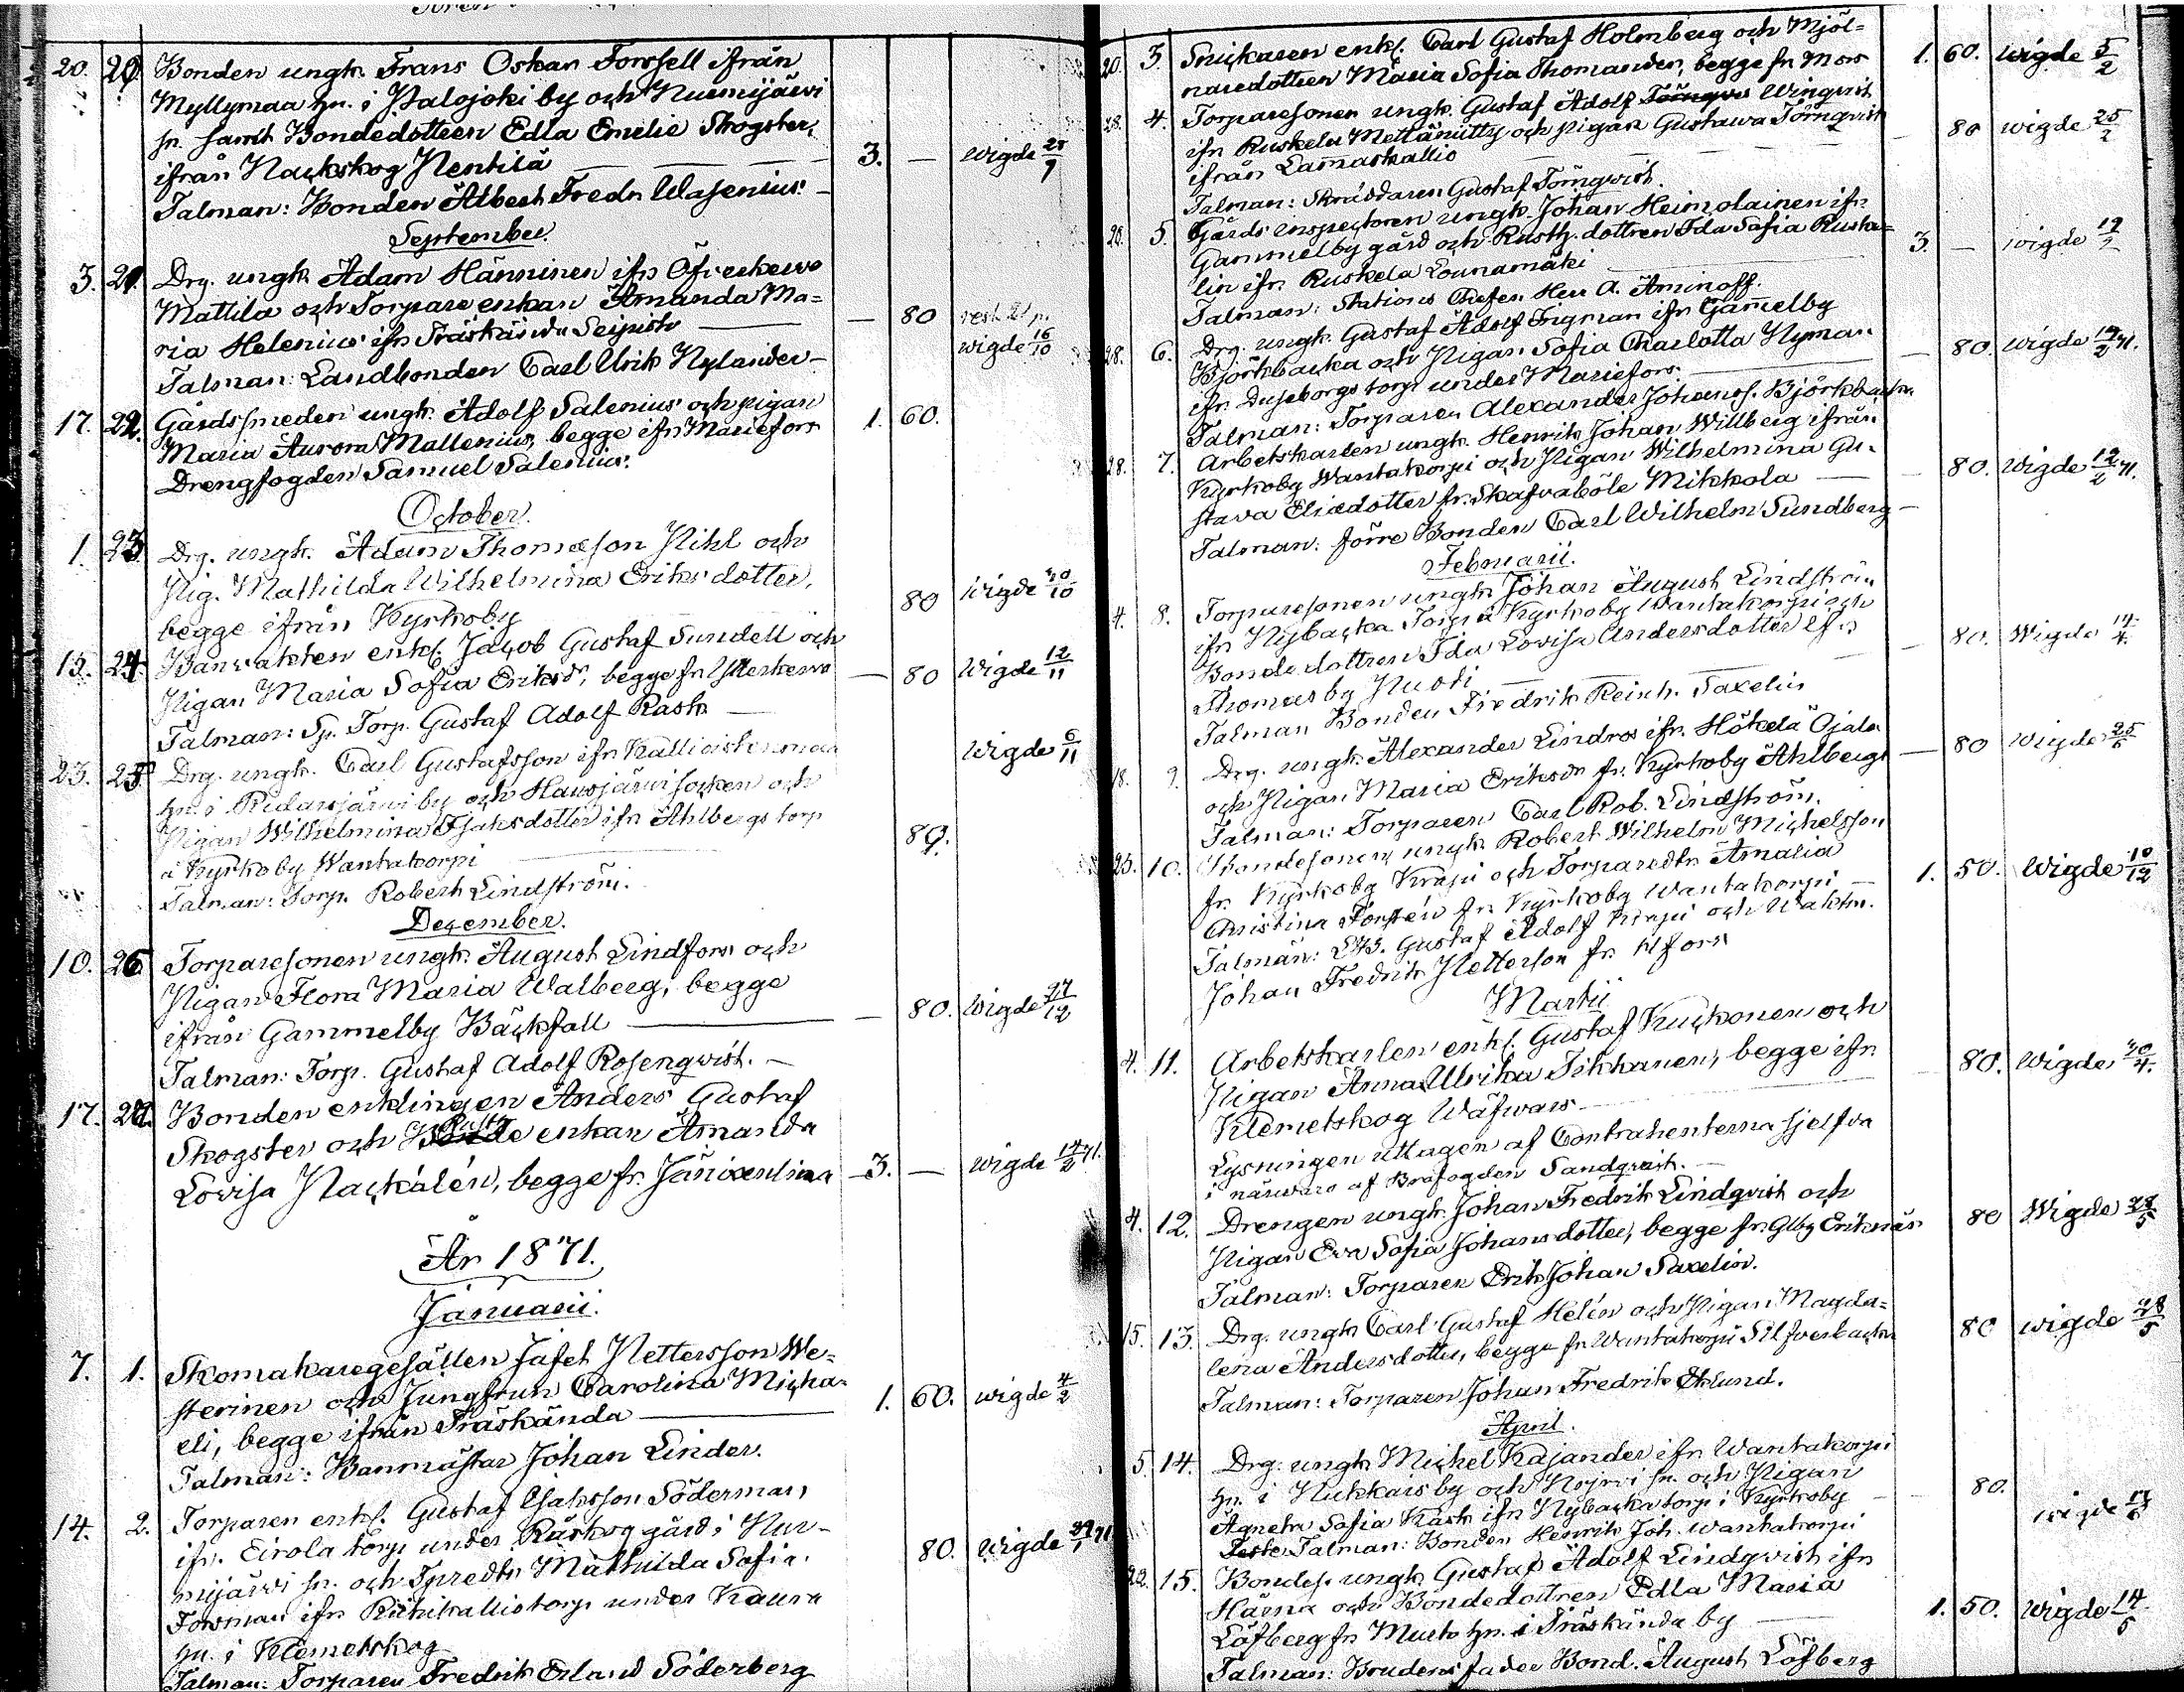 20. 20. Bonden ungk. Frans Oskar Forssell ifrån
Myllymaa hn. i Palojoki by och Nurmijärvi
sn. samt Bondedottren Edla Emelie Skogster,
ifrån Nackskog Pentilä — 3. — wigde
Talman: Bonden Albert Fredr. Wasenius. —
September.
3. 21. Drg. ungk. Adam Hänninen ifn Öfverkervo
Mattila och Torpare enkan Amanda Ma=
ria Helenius ifn Träskända Seipist — 80 rest. 21 p.
wigde 16/10
Talman: Landbonden Carl Ulrik Nylander —
17. 22. Gårdssmeden ungk. Adolf Salenius och pigan 1. 60.
Maria Aurora Mallenius, begge ifn Mariefors
Drengfogden Samuel Salenius.
October.
1. 23. Drg. ungk. Adam Thomasson Pihl och
Pig. Mathilda Wilhelmina Eriksdotter, 80 wigde 30/10
begge ifrån Kyrkoby
15. 24. Banvakten enkl. Jacob Gustaf Sundell och
Pigan Maria Sofia Eriksd., begge fr. Ytterkervo — 80 wigde 12/11
Talman: Sp. Torp. Gustaf Adolf Rask —
23. 25. Drg. ungk. Carl Gustafsson ifn wigde 6/11
hn. i Ridasjärvi by och Hausjärvi socken och
Pigan Wilhelmina Isaksdotter ifn Ahlbergs torp
å Kyrkoby Wantakorpi — 80.
Talman: Torp. Robert Lindström.
December.
10. 26. Torparesonen ungk. August Lindfors och
Pigan Flora Maria Walberg, begge
ifrån Gammelby Bäckfall — 80. wigde 27/12
Talman: Torp. Gustaf Adolf Rosenqvist. —
17. 27. Bonden enklingen Anders Gustaf
Skogster och Rusth. enkan Amanda
Lovisa Nackalén, begge fr. Jänixenlinna — 3. — wigde 14/2 71.
År 1871.
Januarii.
7. 1. Skomakaregesällen Jafet Pettersson We=
sterinen och Jungfrun Carolina Micha=
eli, begge ifrån Träskända — 1. 60. wigde 4/2
Talman: Banmästar Johan Linder.
14. 2. Torparen enkl. Gustaf Isaksson Söderman,
ifn. Eirola torp under Råskog gård i Nur-
mijärvi sn. och Tpredtr Mathilda Sofia 80. wigde
Forsman ifn Riihikallio torp under Kaura
hn. i Klemetskog
Talman: Torparen Fredrik Erland Söderberg
20. 3. Snickaren enkl. Carl Gustaf Holmberg och Mjöl=
naredottren Maria Sofia Thomander, begge fr. Mors 1. 60. wigde 5/2
28. 4. Torparesonen ungk. Gustaf Adolf Törnqvis Winqvist
ifn Ruskela Mettäniitty och pigan Gustawa Törnqvist — 80 wigde 25/2
ifrån Lammaskallio
Talman: Skräddaren Gustaf Törnqvist.
28. 5. Gårds inspectoren ungk. Johan Heimolainen ifn
Gammelby gård och Rusth. dottren Ida Sofia Ruska= 3. — wigde
lin ifn Ruskela Lounamäki
Talman: Stations Chefen Herr A. Aminoff.
28. 6. Drg. ungk. Gustaf Adolf Frigman ifn Gamelby
Björkbacka och Pigan Sofia Charlotta Nyman — 80. wigde 12/2 71.
ifn. Duseborgs torp under Mariefors
Talman: Torparen Alexander Johanss. Björkbacka
28. 7. Arbetskarlen ungk. Henrik Johan Willberg ifrån
Kyrkoby Wantakorpi och Pigan Wilhelmina Gu- — 80. wigde 12/2 71.
stava Eliedotter fr. Skafvaböle Mikkola —
Talman: förre Bonden Carl Wilhelm Sundberg —
Februarii.
4. 8. Torparesonen ungk. Johan August Lindström
ifn Nybacka Torp å Kyrkoby Wantakorpi och
Bondedottren Ida Lovisa Andersdotter ifn — 80. wigde
Thomasby Nuoti
Talman Bonden Fredrik Reinh. Saxelin
18. 9. Drg. ungk. Alexander Lindros ifn. Hökelä Ojala
och Pigan Maria Eriksdr fr. Kyrkoby Åhlbergs — 80 wigde
Talman: Torparen Carl Rob. Lindström.
25. 10. Bondesonen ungk. Robert Wilhelm Michelsson
fr. Kyrkoby Krapi och Torparedtr. Amalia 1. 50. wigde 10/12
Christina Forstén fr. Kyrkoby Wantakorpi
Talman: Gustaf Adolf Krapi och Waktm.
Johan Fredrik Petterson fr. Hfors
Martii
4. 11. Arbetskarlen enkl. Gustaf Kuckonen och
Pigan Anna Ulrika Tikkanen, begge ifn 80. wigde 30/4.
Klemetskog Wäfvars
Lysningen uttagen af Contrahenterna sjelfva
i närvaro af Brofogden Sandqvist. —
4. 12. Drengen ungk. Johan Fredrik Lindqvist och 80 wigde 28/5
Pigan Eva Sofia Johansdotter, begge fr. Glby Eriksnäs
Talman: Torparen Erik Johan Saxelin.
15. 13. Drg. ungk. Carl Gustaf Helén och Pigan Magda= 80 wigde 28/5
lena Andersdotter, begge fr. Wantakorpi Silfverbacka
Talman: Torparen Johan Fredrik Eklund.
April.
5. 14. Drg. ungk. Michel Kajander ifn Wantakorpi
hn. i Nukkais by och sn. och Pigan — 80.
Agneta Sofia Rask ifn Nybacka torp i Kyrkoby wigde
Talman: Bonden Henrik Joh. Wantakorpi
22. 15. Bondes. ungk. Gustaf Adolf Lindqvist ifn
Härna och Bondedottren Edla Maria
Löfberg fn Murto hn. i Träskända by — 1. 50. wigde 14/5
Talman: Brudens fader Bond. August Löfberg